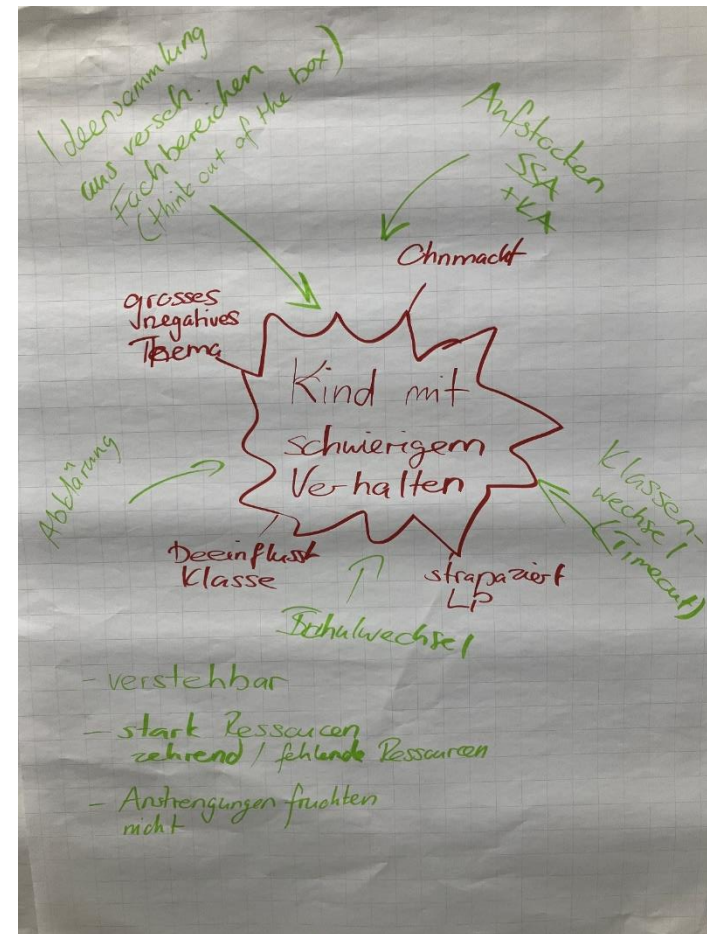 Ideensammlung
aus versch.
Fachbereichen
(think out of the box)
Aufstocken
SSA
+KA
Ohnmacht
grosses
negatives
Thema
Kind mit
schwierigem
Verhalten
Abklärung
Klassen-
wechsel
(Timeout)
Beeinflusst
Klasse
strapaziert
LP
Schulwechsel
- verstehbar
- stark Ressourcen
zehrend / fehlende Ressourcen
- Anstrengungen fruchten
nicht